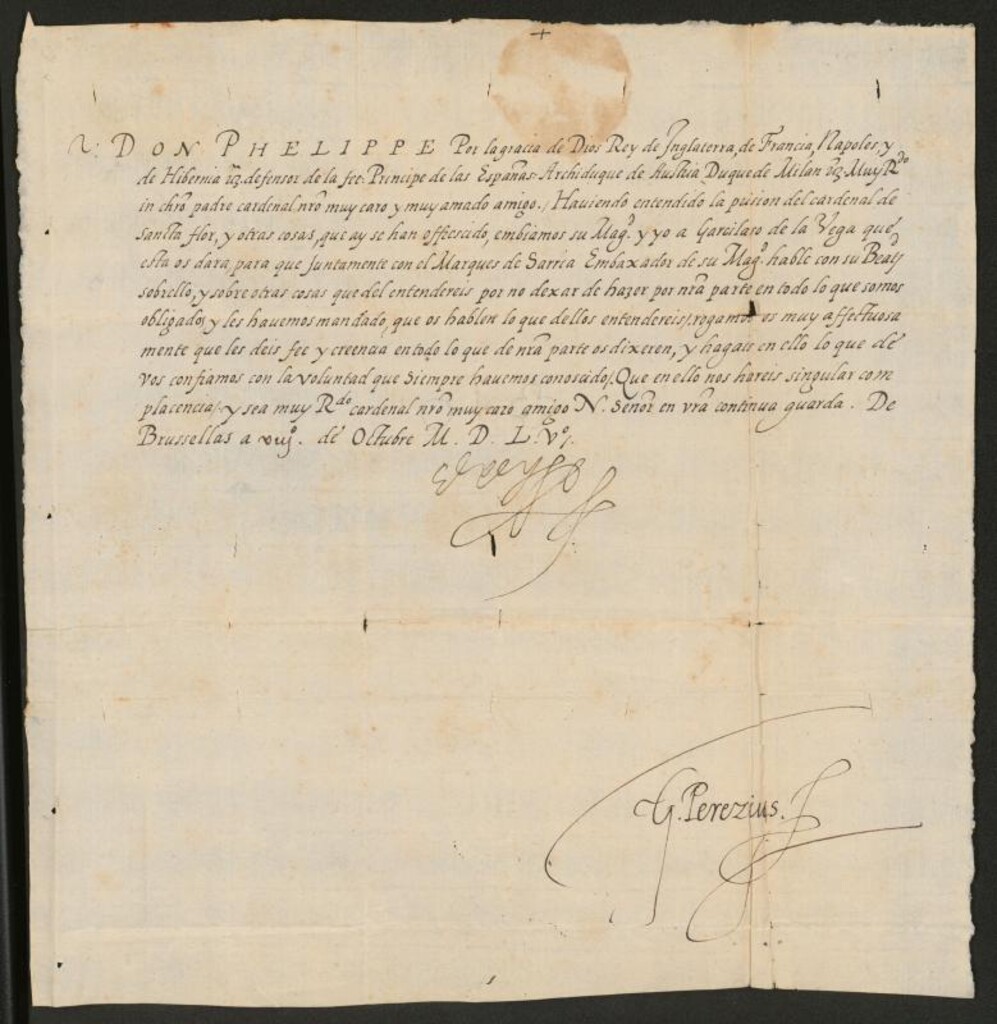 DON PHELIPPE Por la gracia de Dios Rey de Inglaterra, de Francia, Napoles, y
de Hibernia &c. defensor de la fee: Principe de las Españas: Archiduque de Austria, Duque de Milan &c. Muy R.do
in chr̃o padre cardenal nr̃o muy caro y muy amado amigo./ Haviendo entendido la prision del cardenal de
Sancta flor, y otras cosas, que ay se han offrescido, embiamos su Mag.t y yo a Garcilaso de la Vega que
esta os dara, para que juntamente con el Marques de Sarria Embaxador de su Mag.t hable con su Beat.
sobrello, y sobre otras cosas que del entendereis por no dexar de hazer por nr̃a parte en todo lo que somos
obligados, y les havemos mandado, que os hablen lo que dellos entendereis/. rogamos os muy affectuosa
mente que les deis fee y creencia en todo lo que de nr̃a parte os dixeren, y hagais en ello lo que de
vos confiamos con la voluntad que siempre havemos conoscido/. Que en ello nos hareis singular com
placencia/. y sea muy R.do cardenal nr̃o muy caro amigo N. Senõr en vr̃a continua guarda. De
Brussellas a viij.o de Octubre M. D. L. V.o/.
G. Perezius.